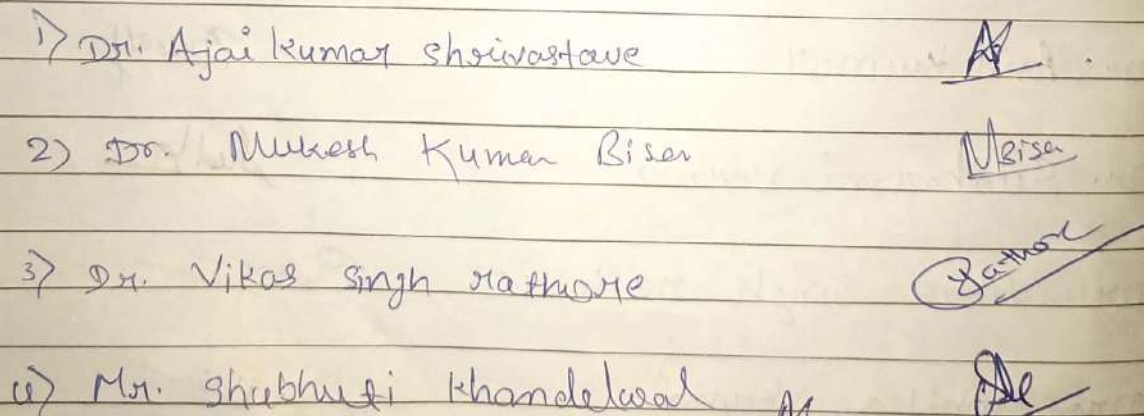 1) Dr. Ajai Kumar Shrivastave
2) Dr. Mukesh Kumar Biser MBiser
3) Dr. Vikas Singh rathore Rathore
4) Mr. Shubhuti Khandelwal